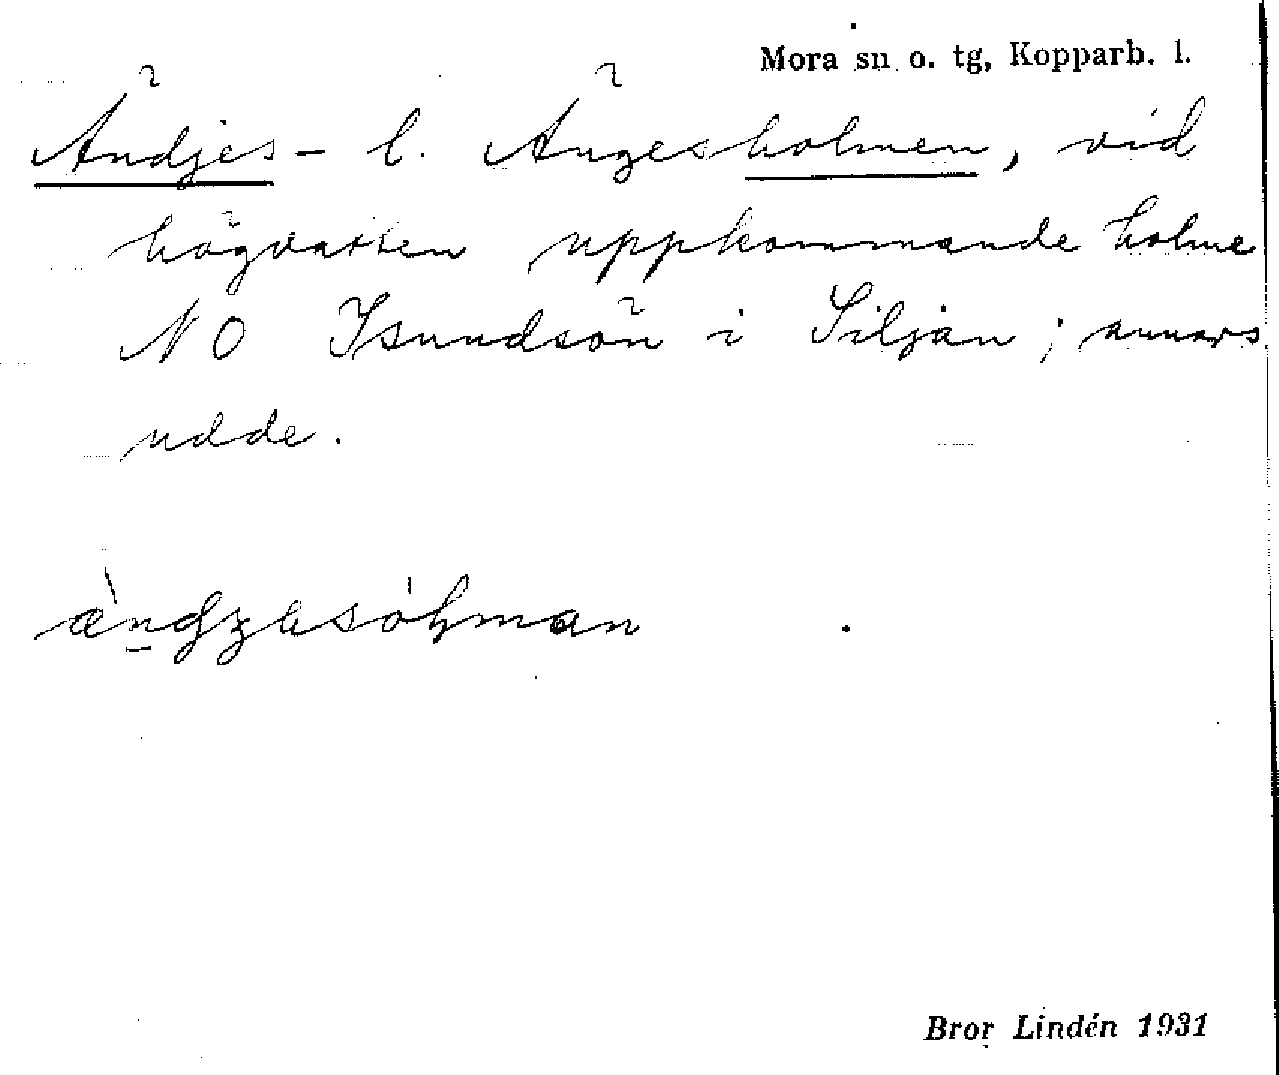 Mora sn o. tg, Kopparb. l.
Ändjes- l. Ängesholmen, vid
högvatten uppkommande holme
NO Isundsön i Siljan; annars
udde.
Bror Lindén 1931